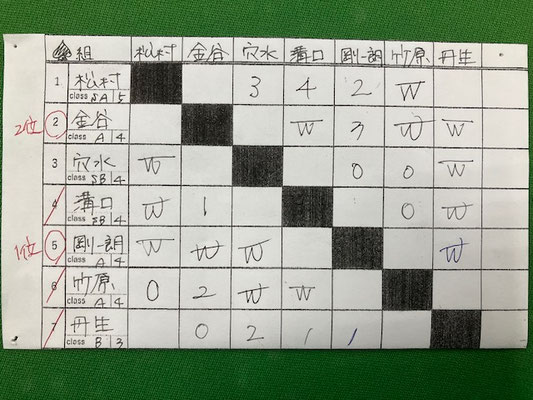 組 松村 金谷 穴水 溝口 剛一朗 竹原 丹生
1 松村 3 4 2 W
class SA 5
2位 2 金谷 W 3 W W
class A 4
3 穴水 W 0 0 W
class SB 4
4 溝口 W 1 0 W
class SB 4
1位 5 剛一朗 W W W W
class A 4
6 竹原 0 2 W W
class A 4
7 丹生 0 2 1 1
class B 3